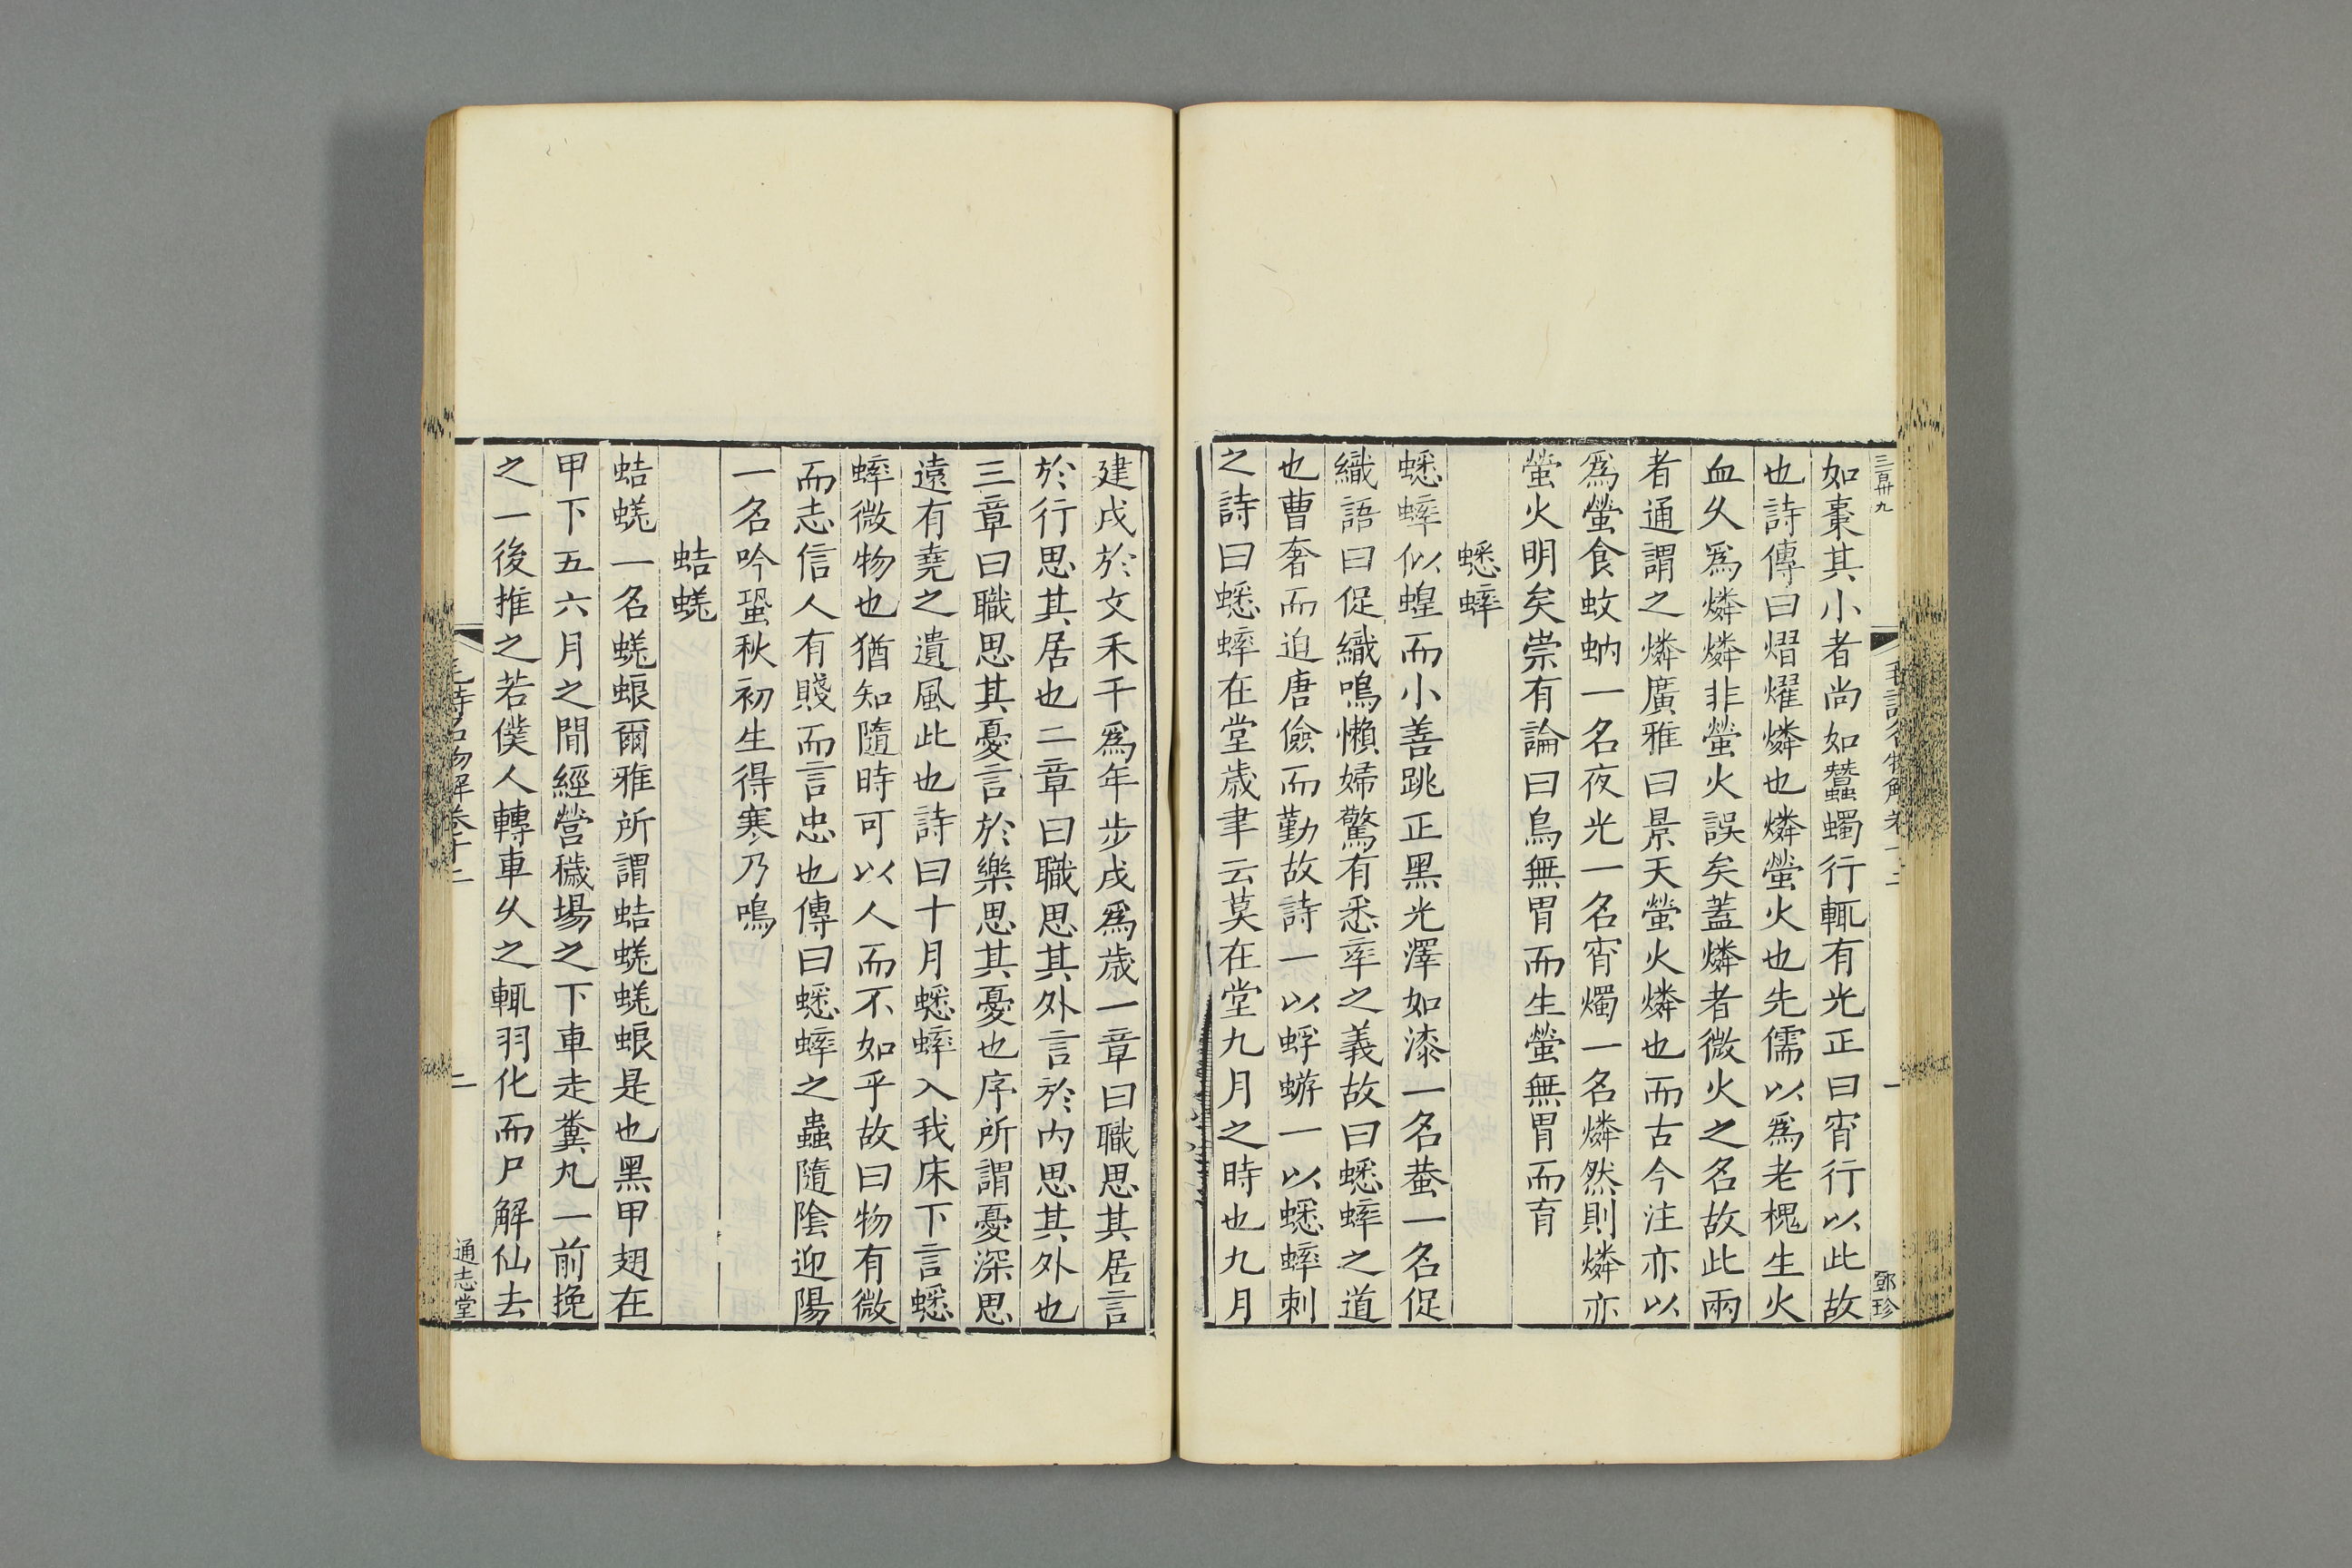 三百卅九
毛詩名物解卷十二
一
鄧珍
如棗其小者尚如蠶蠋行輒有光正曰宵行以此故
也詩傳曰熠燿燐也燐螢火也先儒以爲老槐生火
血久爲燐燐非螢火誤矣蓋燐者微火之名故此兩
者通謂之燐廣雅曰景天螢火燐也而古今注亦以
爲螢食蚊蚋一名夜光一名宵燭一名燐然則燐亦
螢火明矣崇有論曰烏無胃而生螢無胃而育
蟋蟀
蟋蟀似蝗而小善跳正黑光澤如漆一名蛬一名促
織語曰促織鳴懶婦驚有悉率之義故曰蟋蟀之道
也曹奢而迫唐儉而勤故詩一以蜉蝣一以蟋蟀刺
之詩曰蟋蟀在堂歲聿云莫在堂九月之時也九月
建戌於文禾千爲年步戌爲歲一章曰職思其居言
於行思其居也二章曰職思其外言於内思其外也
三章曰職思其憂言於樂思其憂也序所謂憂深思
遠有堯之遺風此也詩曰十月蟋蟀入我床下言蟋
蟀微物也猶知隨時可以人而不如乎故曰物有微
而志信人有賤而言忠也傳曰蟋蟀之蟲隨陰迎陽
一名吟蛩秋初生得寒乃鳴
蛣蜣
蛣蜣一名蜣蜋爾雅所謂蛣蜣蜣蜋是也黑甲翅在
甲下五六月之間經營穢場之下車走糞丸一前挽
之一後推之若僕人轉車久之輒羽化而尸解仙去
毛詩名物解卷十二
二
通志堂